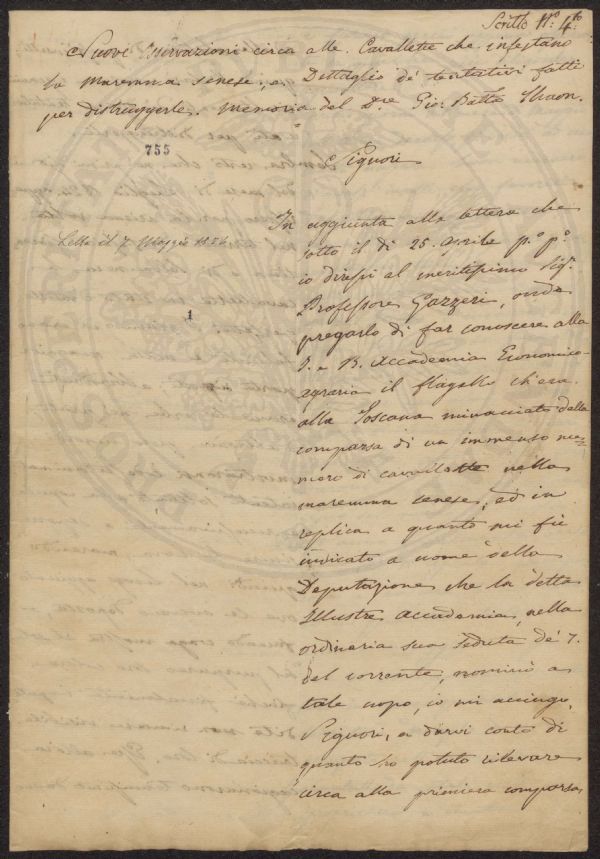 Scritto N.º 4.to
Nuove Osservazioni circa alle Cavallette che infestano
la maremma senese, e Dettaglio de' tentativi fatti
per distruggerle. Memoria del D.re Gio: Batta Thaon.
755
Signori
Letta il 7 Maggio
In aggiunta alla lettera che
sotto il dì 25. Aprile p.º p.º
io diressi al meritissimo Sig.r
Professore Gazzeri, onde
pregarlo di far conoscere alla
I. e R. Accademia Economico-
agraria il flagello ch'era
alla Toscana minacciato dalla
comparsa di un immenso nu=
mero di cavallette nella
maremma senese, ed in
replica a quanto mi fu
indicato a nome della
Deputazione che la detta
Illustre Accademia, nella
ordinaria sua Seduta de' 7.
del corrente, nominò a
tale uopo, io mi accingo,
Signori, a darvi conto di
quanto ho potuto rilevare
circa alla primiera comparsa
1